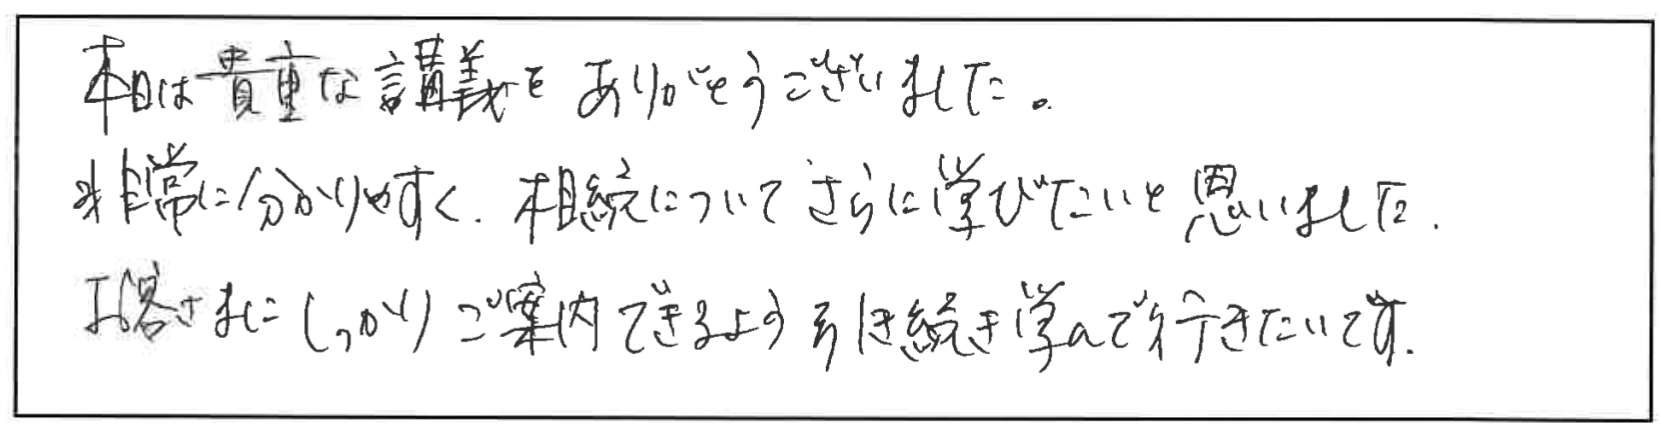 本日は貴重な講義をありがとうございました。
非常に分かりやすく、相続についてさらに学びたいと思いました。
お客さまにしっかりご案内できるよう引き続き学んで行きたいです。